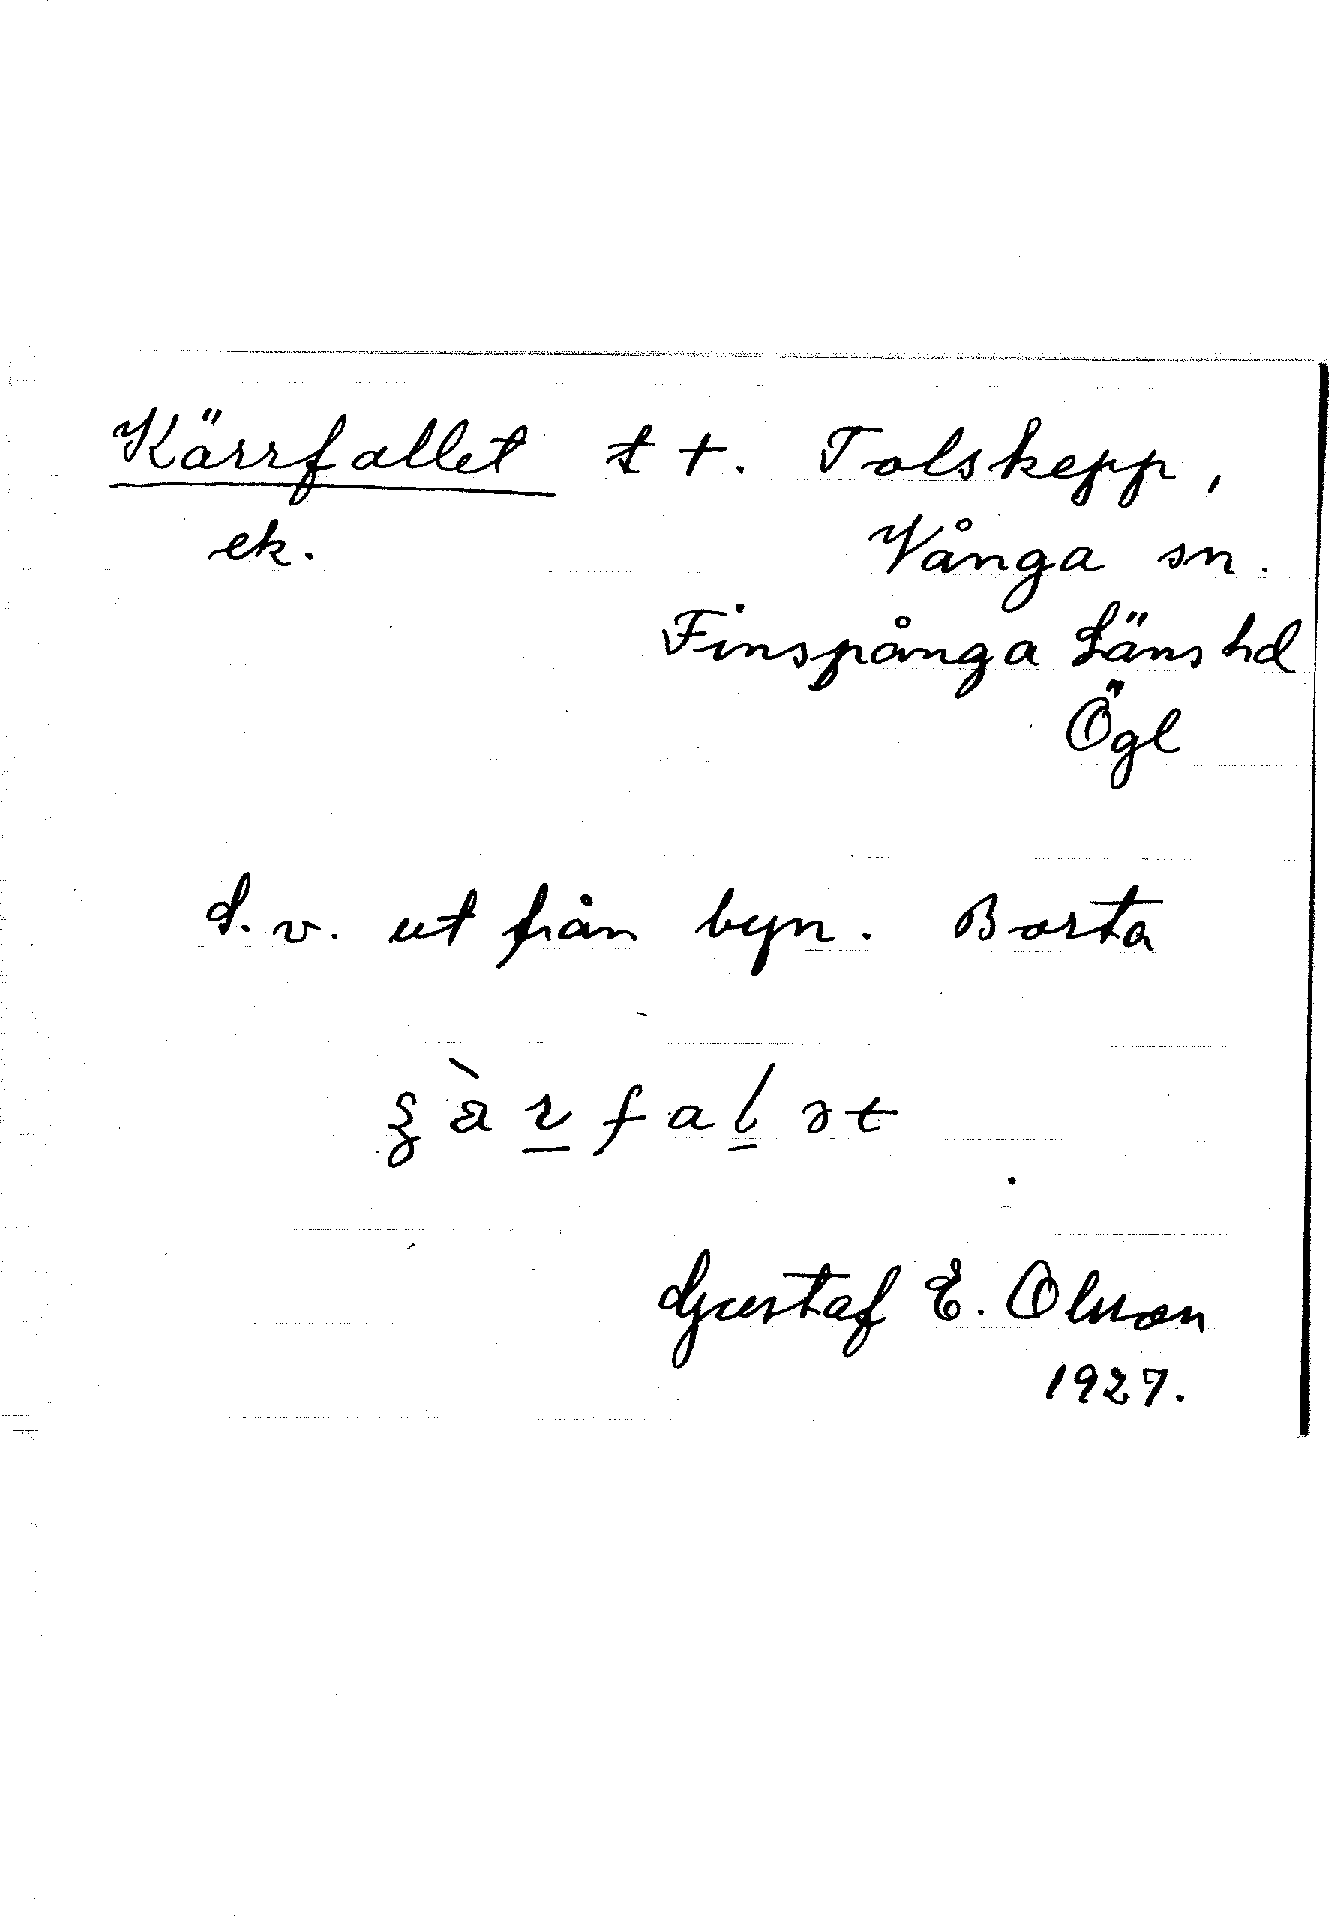 Kärrfallet t t. Tolskepp,
ek. Vånga sn.
Finspånga Läns hd
Ögl
d.v. ut från byn. Borta
ʒàrfalət
Gustaf E. Olsson
1927.